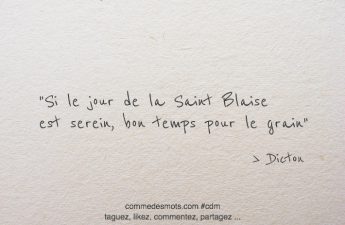 "Si le jour de la Saint Blaise
est serein, bon temps pour le grain"
> Dicton
commedesmots.com #cdm
taguez, likez, commentez, partagez ...